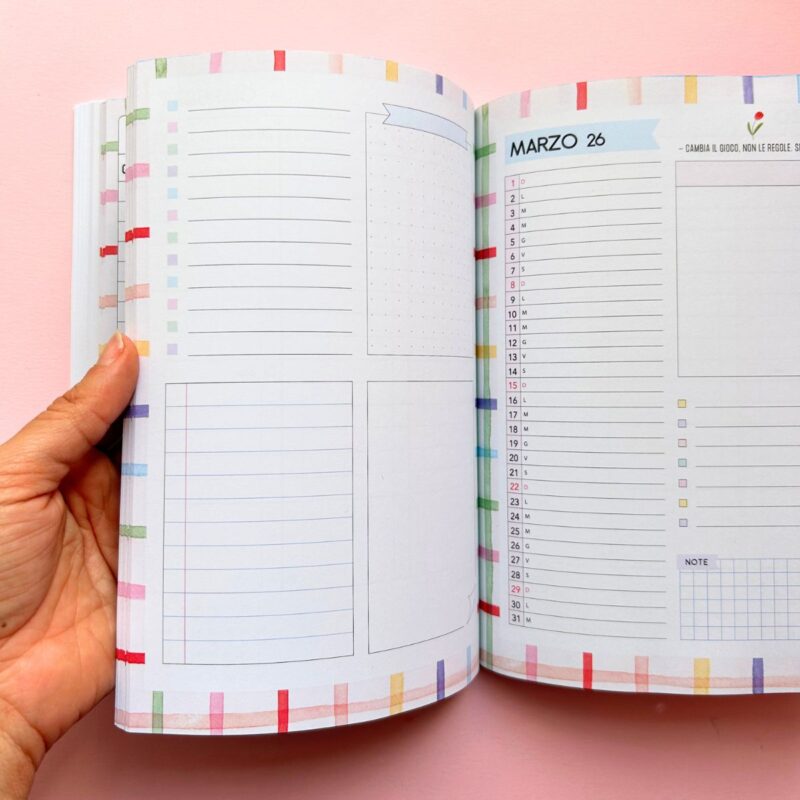 MARZO 26
– CAMBIA IL GIOCO, NON LE REGOLE.
1 D
2 L
3 M
4 M
5 G
6 V
7 S
8 D
9 L
10 M
11 M
12 G
13 V
14 S
15 D
16 L
17 M
18 M
19 G
20 V
21 S
22 D
23 L
24 M
25 M
26 G
27 V
28 S
29 D
30 L
31 M
NOTE